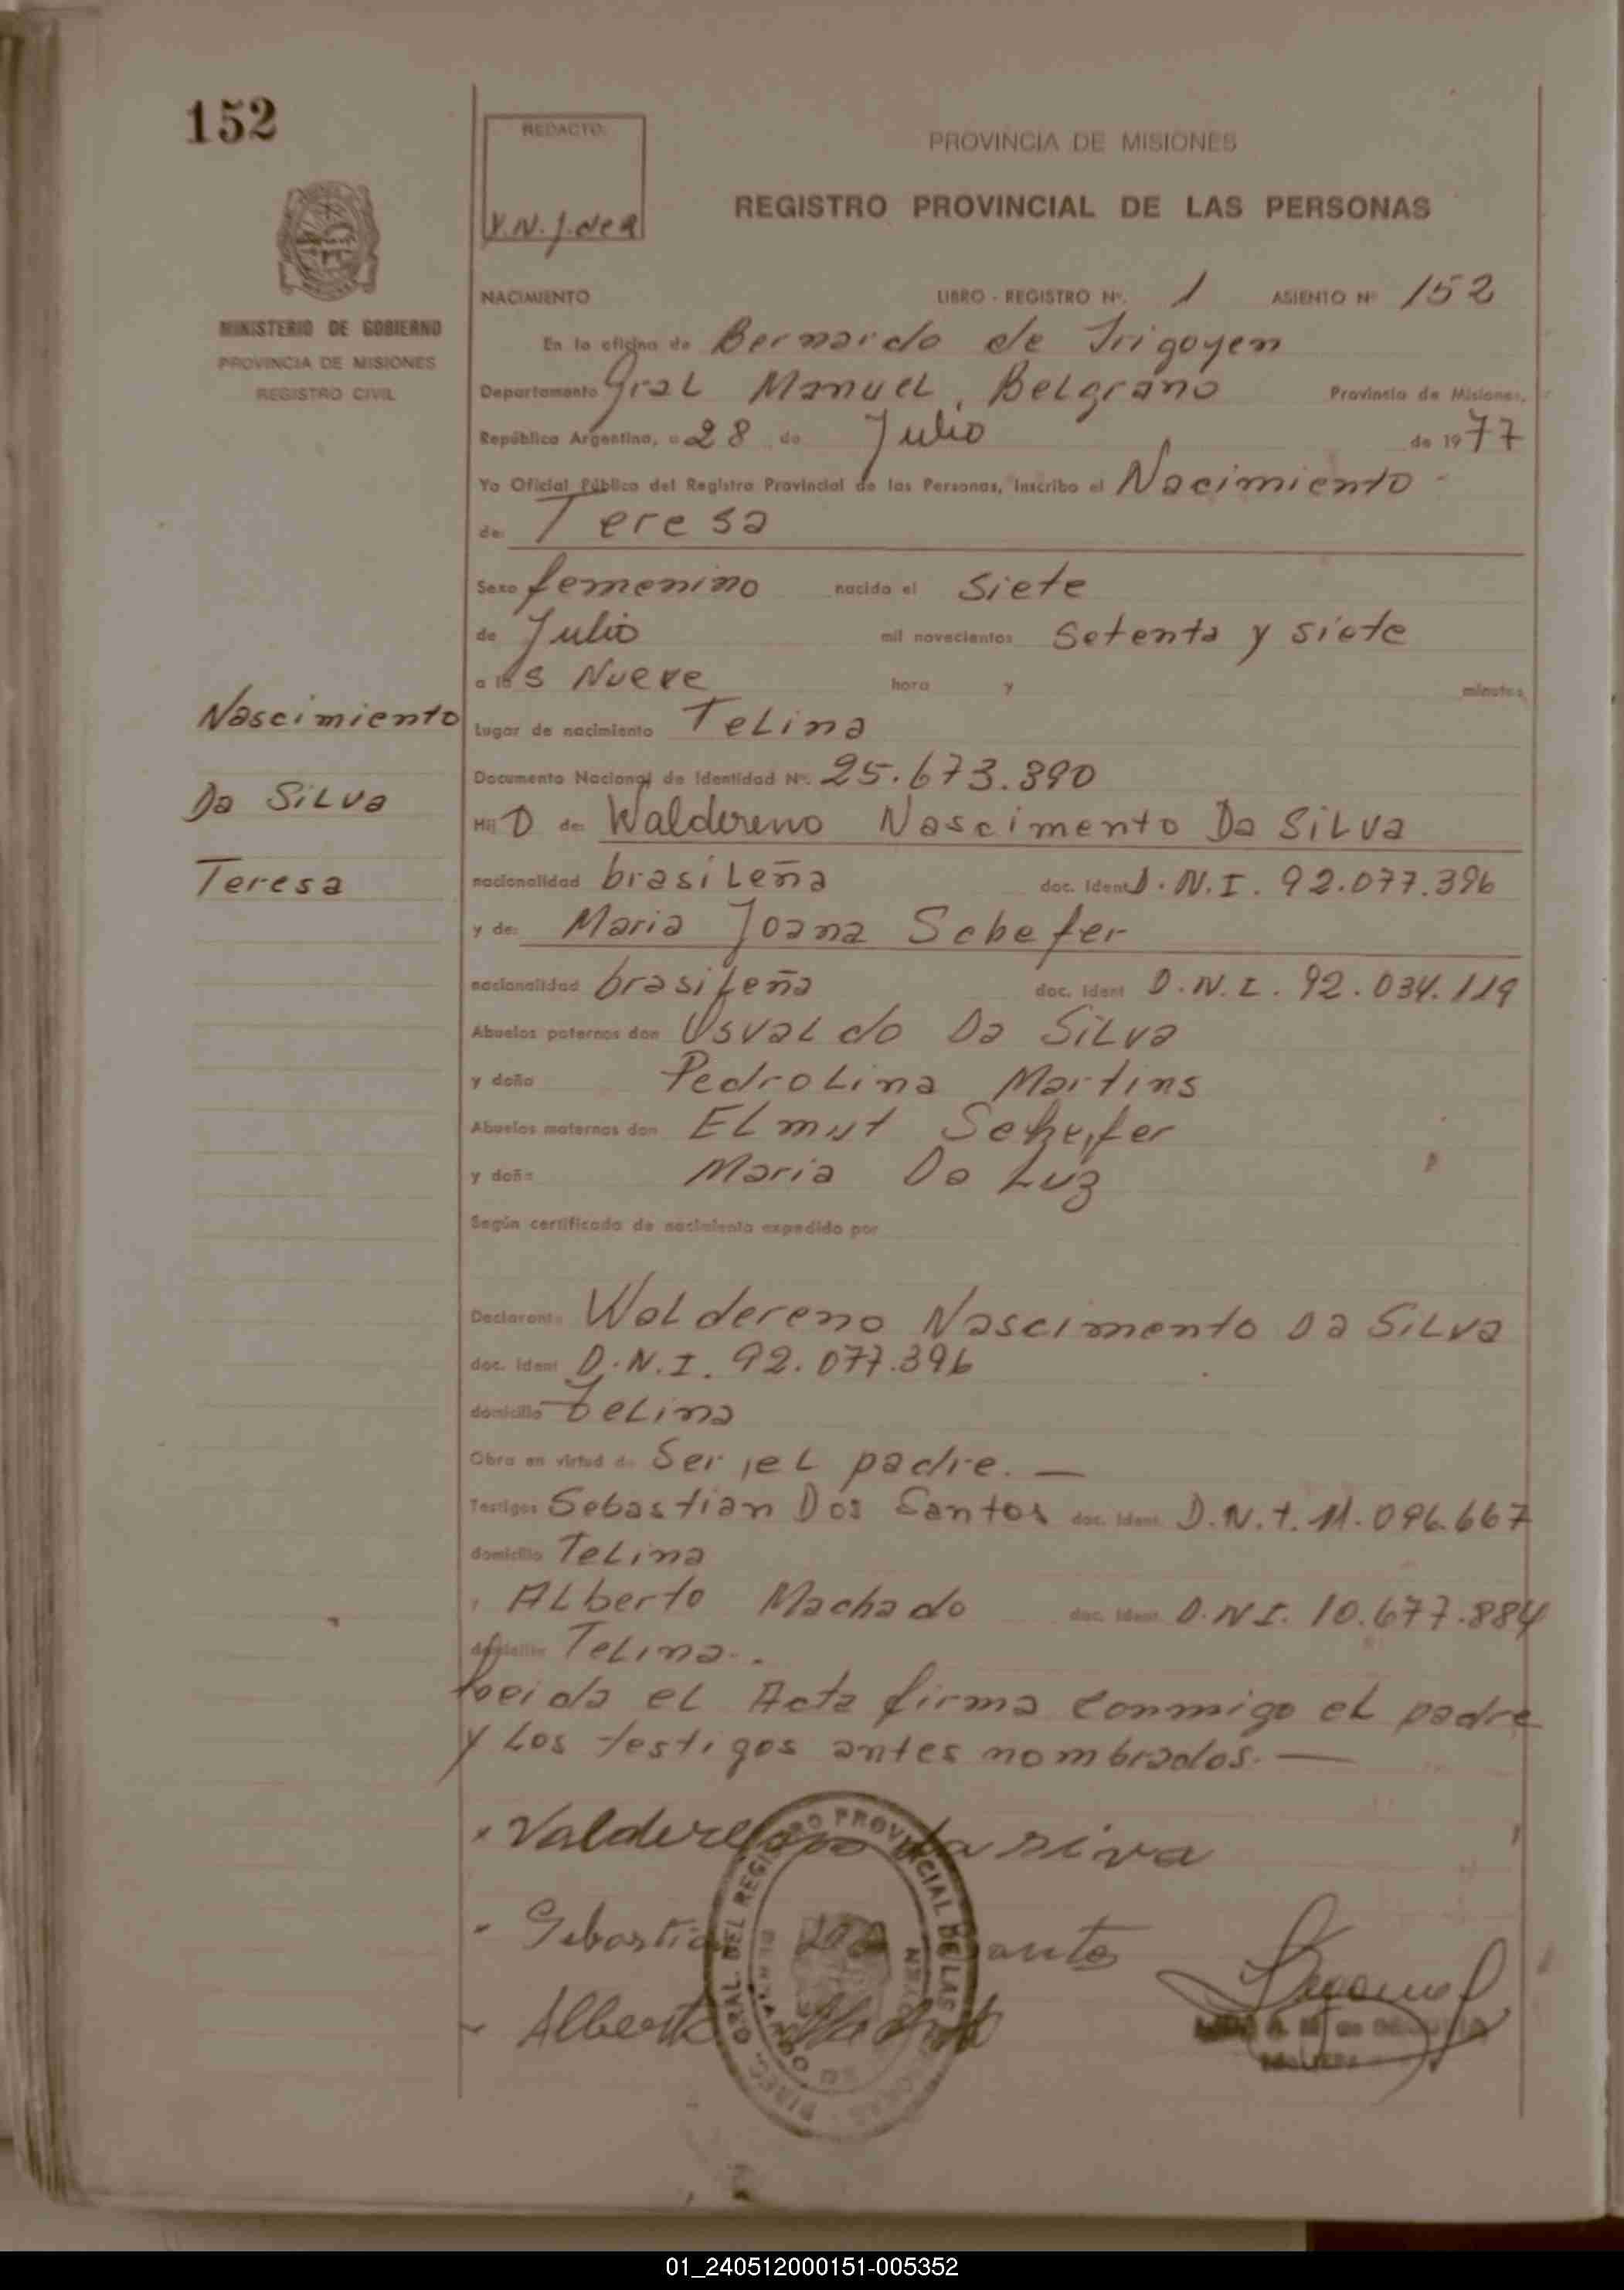 152
REDACTO:
PROVINCIA DE MISIONES
REGISTRO PROVINCIAL DE LAS PERSONAS
NACIMIENTO LIBRO - REGISTRO Nº. 1 ASIENTO Nº 152
MINISTERIO DE GOBIERNO
PROVINCIA DE MISIONES
REGISTRO CIVIL
En la oficina de Bernardo de Irigoyen
Departamento Gral Manuel Belgrano Provincia de Misiones,
República Argentina, a 28 de Julio de 1977
Yo Oficial Público del Registro Provincial de las Personas, inscribo el Nacimiento
de: Teresa
Sexo femenino nacido el Siete
de Julio mil novecientos Setenta y siete
a las Nueve hora y minutos
Nascimiento
Da SiLva
Teresa
Lugar de nacimiento TeLina
Documento Nacional de Identidad Nº. 25.673.390
Hij O de: Waldereno Nascimento Da SiLva
nacionalidad brasiLeña doc. Ident D.N.I. 92.077.396
y de: Maria Joana Schefer
nacionalidad brasiLeña doc. Ident D.N.I. 92.034.119
Abuelos paternos don UsvaLdo Da SiLva
y doña PedroLina Martins
Abuelos maternos don ELmut Schefer
y doña Maria Da Luz
Según certificado de nacimiento expedido por
Declarante WaLdereno Nascimento Da SiLva
doc. Ident D.N.I. 92.077.396
domicilio TeLina
Obra en virtud de Ser eL padre. —
Testigos Sebastian Dos Santos doc. Ident. D.N.I. 11.096.667
domicilio TeLina
y ALberto Machado doc. Ident. D.N.I. 10.677.884
domicilio TeLina.
Leida eL Acta firma conmigo eL padre
y Los testigos antes nombrados. —
Valdereno da siva
Sebastian dos Santos
Alberto Machado
DIREC. GRAL. DEL REGISTRO PROVINCIAL DE LAS PERSONAS
01_240512000151-005352